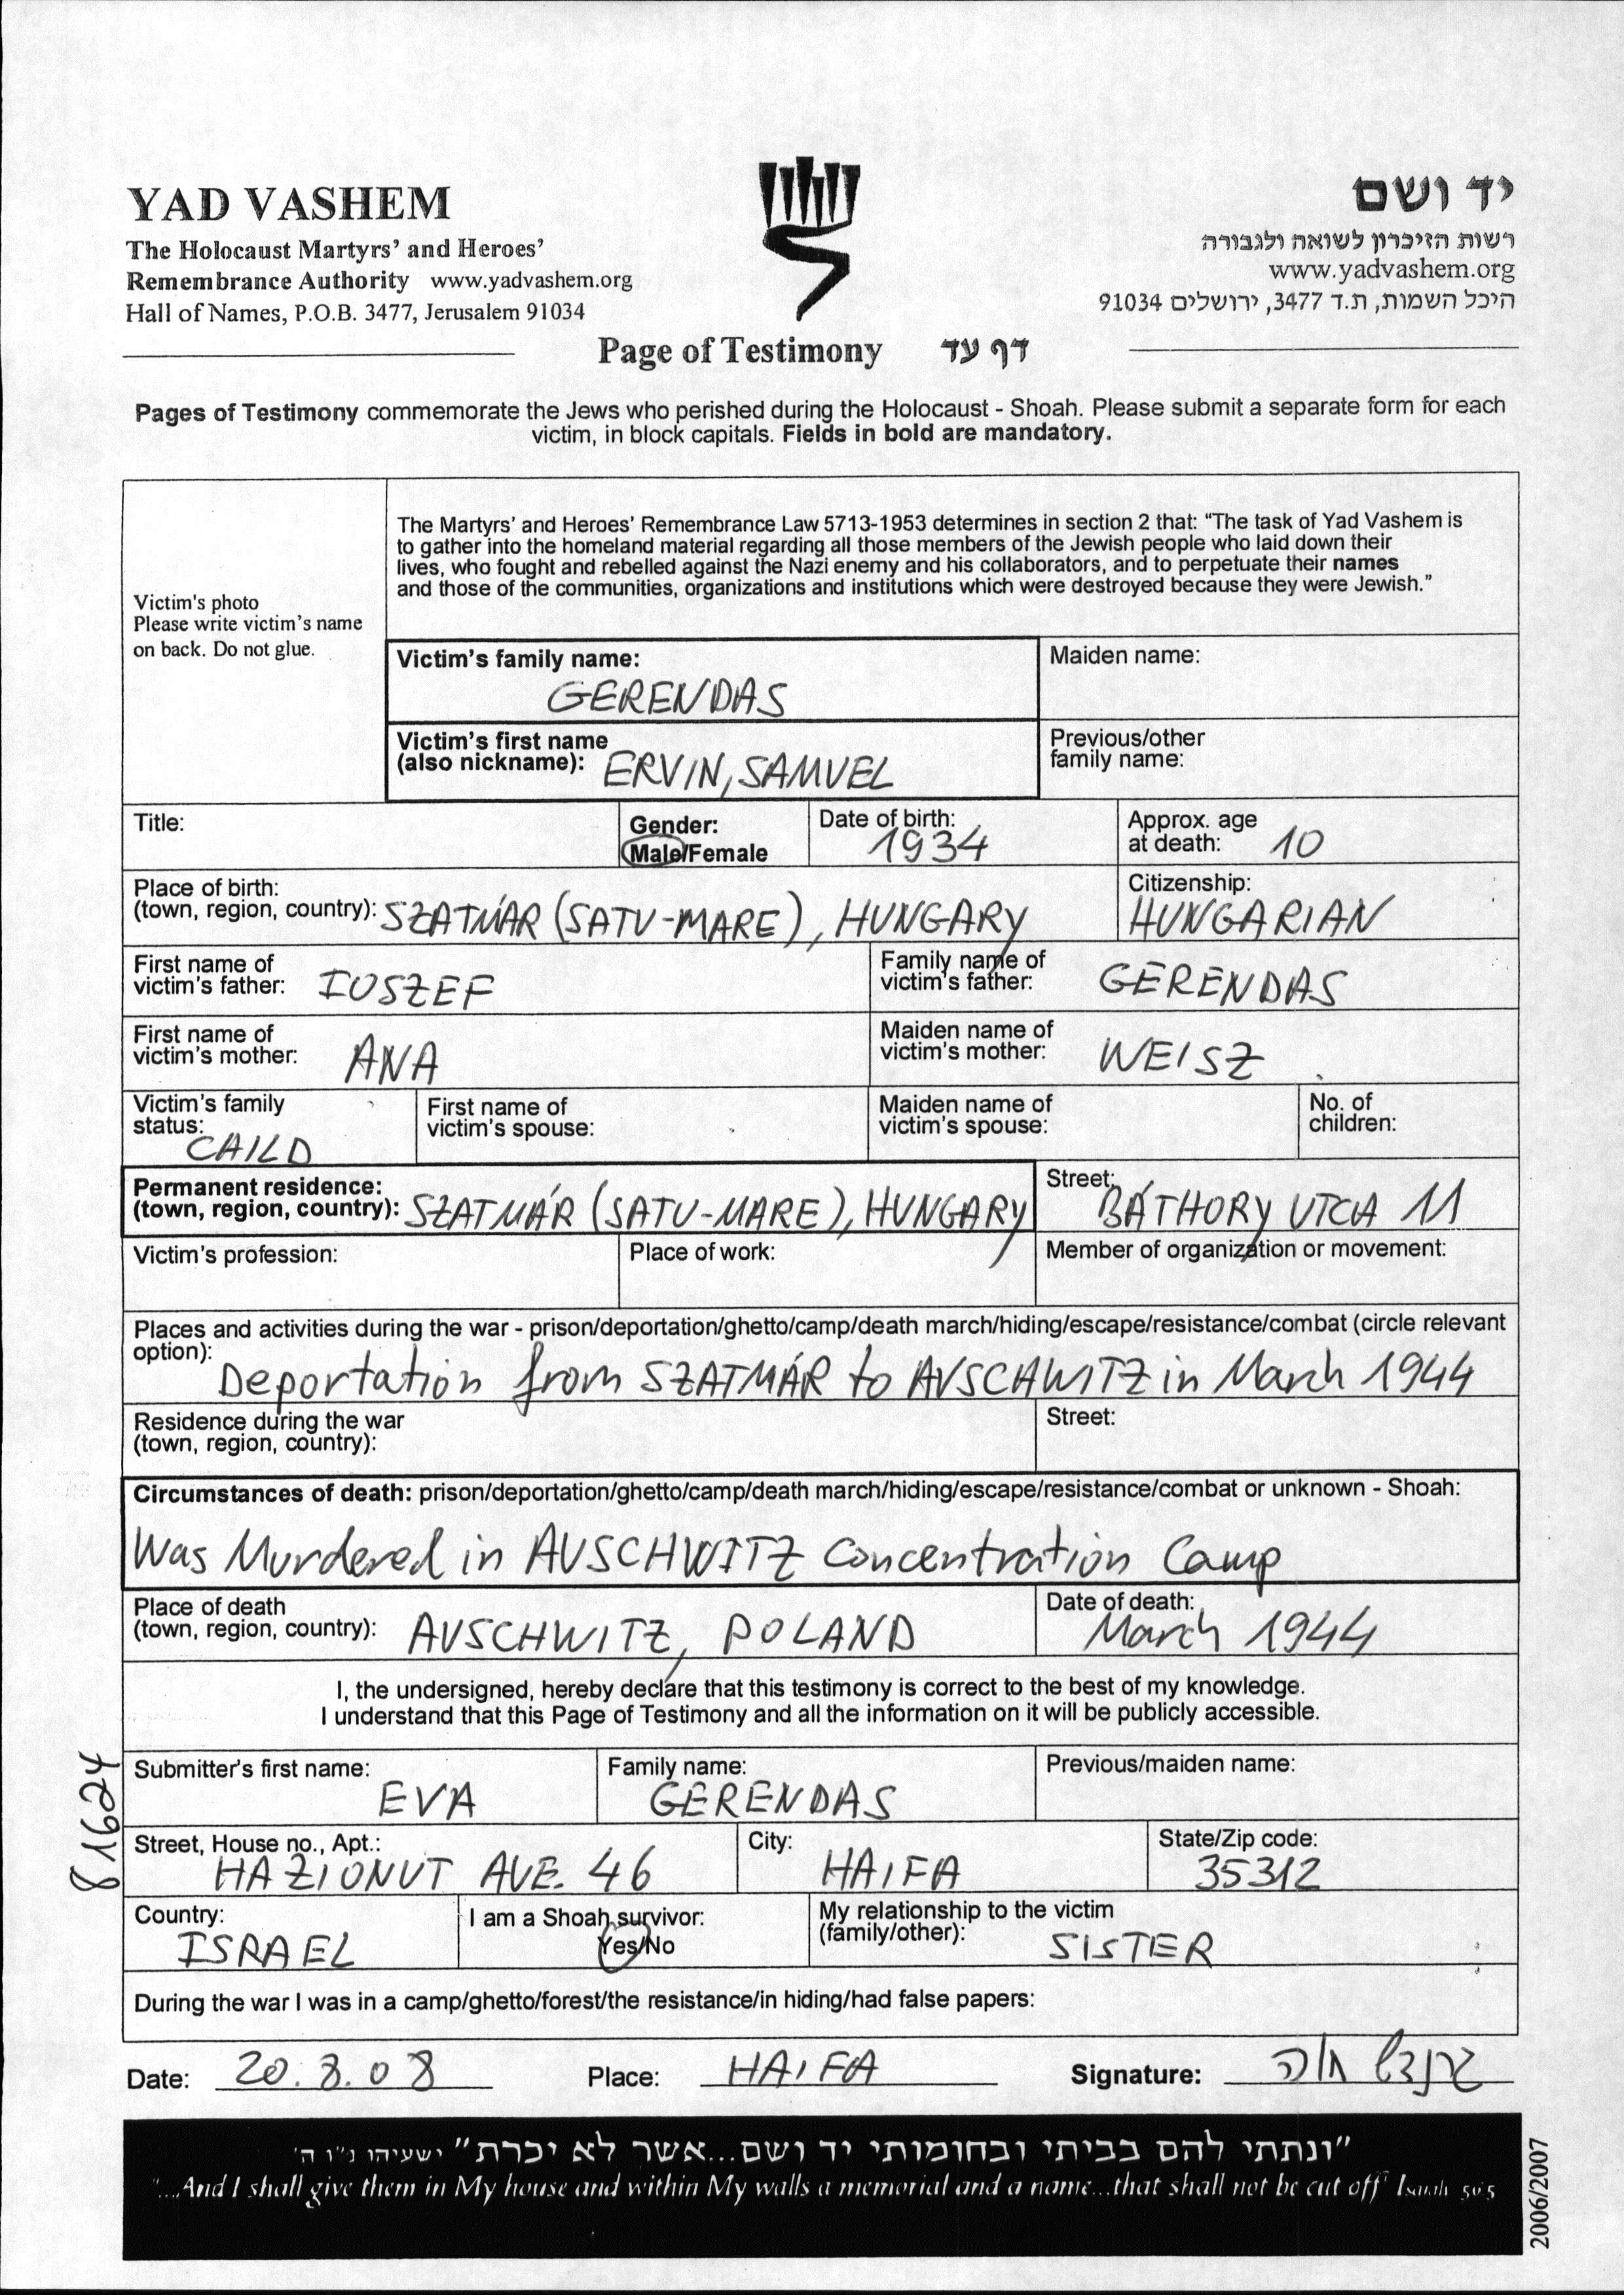 YAD VASHEM
The Holocaust Martyrs' and Heroes'
Remembrance Authority www.yadvashem.org
Hall of Names, P.O.B. 3477, Jerusalem 91034
יד ושם
רשות הזיכרון לשואה ולגבורה
www.yadvashem.org
היכל השמות, ת.ד 3477, ירושלים 91034
Page of Testimony דף עד
Pages of Testimony commemorate the Jews who perished during the Holocaust - Shoah. Please submit a separate form for each
victim, in block capitals. Fields in bold are mandatory.
Victim's photo
Please write victim's name
on back. Do not glue.
The Martyrs' and Heroes' Remembrance Law 5713-1953 determines in section 2 that: "The task of Yad Vashem is
to gather into the homeland material regarding all those members of the Jewish people who laid down their
lives, who fought and rebelled against the Nazi enemy and his collaborators, and to perpetuate their names
and those of the communities, organizations and institutions which were destroyed because they were Jewish."
Victim's family name:
GERENDAS
Maiden name:
Victim's first name
(also nickname): ERVIN, SAMUEL
Previous/other
family name:
Title:
Gender:
Male/Female
Date of birth:
1934
Approx. age
at death: 10
Place of birth:
(town, region, country): SZATMÁR (SATU-MARE), HUNGARY
Citizenship:
HUNGARIAN
First name of
victim's father: IOSZEF
Family name of
victim's father: GERENDAS
First name of
victim's mother: ANA
Maiden name of
victim's mother: WEISZ
Victim's family
status:
CAILD
First name of
victim's spouse:
Maiden name of
victim's spouse:
No. of
children:
Permanent residence:
(town, region, country): SZATMÁR (SATU-MARE), HUNGARY
Street:
BÁTHORY UTCA 11
Victim's profession:
Place of work:
Member of organization or movement:
Places and activities during the war - prison/deportation/ghetto/camp/death march/hiding/escape/resistance/combat (circle relevant
option):
Deportation from SZATMÁR to AUSCHWITZ in March 1944
Residence during the war
(town, region, country):
Street:
Circumstances of death: prison/deportation/ghetto/camp/death march/hiding/escape/resistance/combat or unknown - Shoah:
Was Murdered in AUSCHWITZ Concentration Camp
Place of death
(town, region, country): AUSCHWITZ, POLAND
Date of death:
March 1944
I, the undersigned, hereby declare that this testimony is correct to the best of my knowledge.
I understand that this Page of Testimony and all the information on it will be publicly accessible.
81624
Submitter's first name:
EVA
Family name:
GERENDAS
Previous/maiden name:
Street, House no., Apt.:
HAZIONUT AVE. 46
City:
HAIFA
State/Zip code:
35312
Country:
ISRAEL
I am a Shoah survivor:
Yes/No
My relationship to the victim
(family/other): SISTER
During the war I was in a camp/ghetto/forest/the resistance/in hiding/had false papers:
Date: 20.8.08
Place: HAIFA
Signature:
"ונתתי להם בביתי ובחומותי יד ושם...אשר לא יכרת" ישעיהו נ"ו ה'
"...And I shall give them in My house and within My walls a memorial and a name...that shall not be cut off" Isaiah 56:5
2006/2007